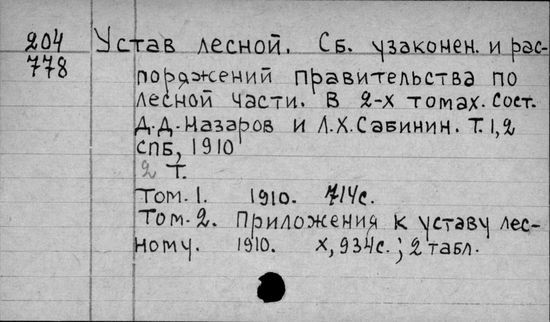 204 Устав лесной. Сб. узаконен. и рас-
778 поряжений правительства по
лесной части. В 2-х томах. Сост.
Д.Д.Назаров и Л.Х.Сабинин. Т.1,2
СПБ, 1910
2 т.
Том.1. 1910. 714с.
Том.2. Приложения к уставу лес-
ному. 1910. X, 934с.; 2 табл.